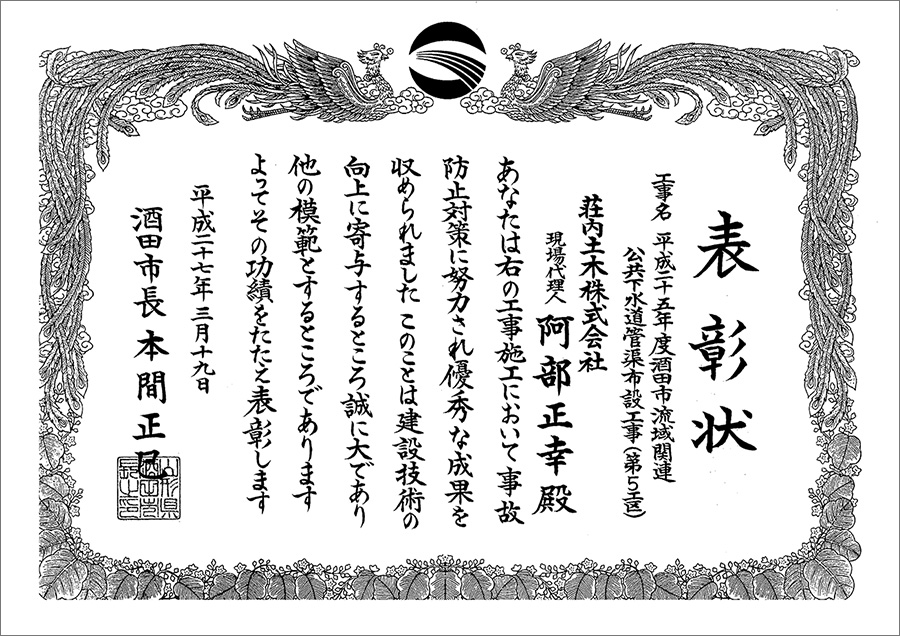 表彰状
工事名 平成二十五年度酒田市流域関連
公共下水道管渠布設工事(第5工区)
荘内土木株式会社
現場代理人 阿部正幸殿
あなたは右の工事施工において事故
防止対策に努力され優秀な成果を
収められました このことは建設技術の
向上に寄与するところ誠に大であり
他の模範とするところであります
よってその功績をたたえ表彰します
平成二十七年三月十九日
酒田市長 本間正巳
山形県
酒田市
長之印